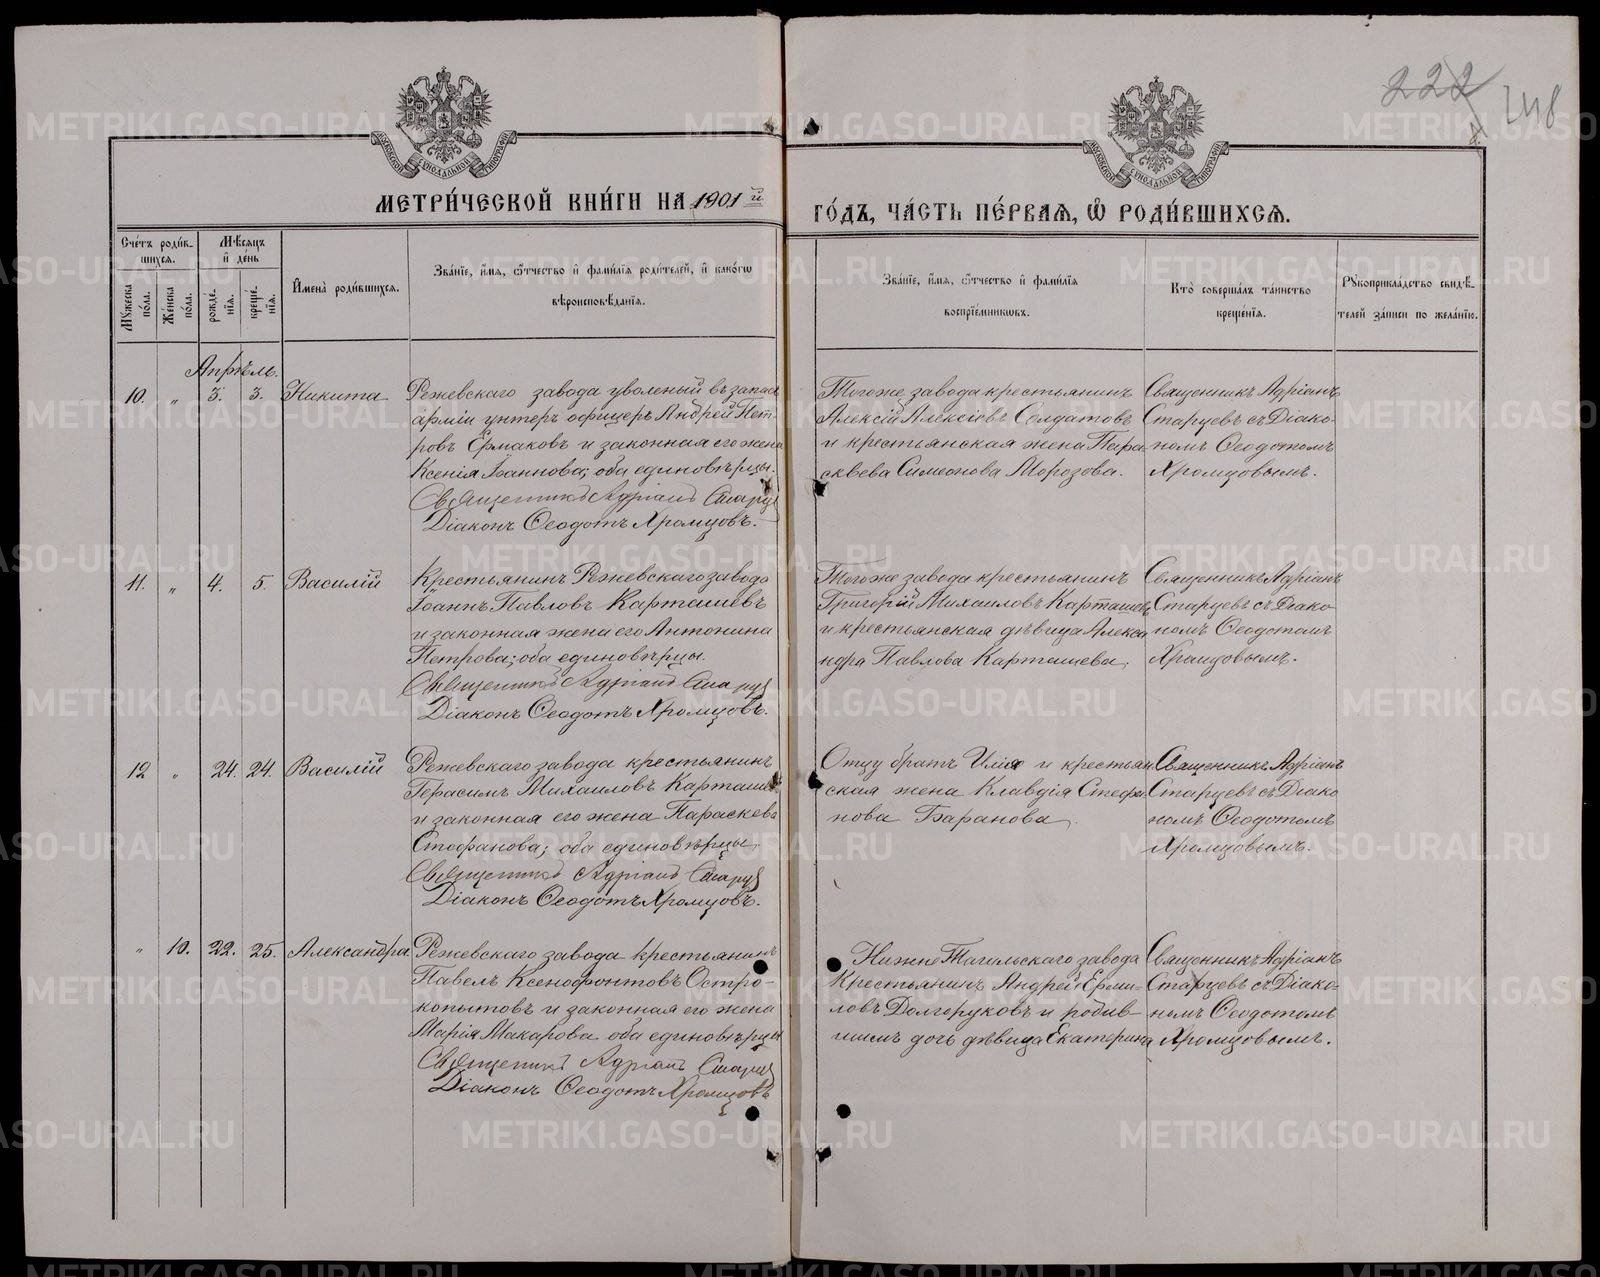 222 248
МЕТРИ́ЧЕСКОЙ КНИ́ГИ НА 1901 й
ГО́ДЪ, ЧА́СТЬ ПЕ́РВАѦ, Ѿ РОДИ́ВШИХСѦ.
МОСКОВСКОЙ СѴНОДАЛЬНОЙ ТИПОГРАФІИ
МОСКОВСКОЙ СѴНОДАЛЬНОЙ ТИПОГРАФІИ
Сче́тъ роди́в-
шихсѧ.
Мѣ́сѧцъ
и де́нь
Мꙋ́жеска по́ла.
Же́нска по́ла.
рожде́нїѧ.
креще́нїѧ.
И҆мена̀ роди́вшихсѧ.
Зва́нїе, и҆́мѧ, ѻ҆́тчество и҆ фами́лїѧ роди́телей, и҆ како́гѡ
вѣроисповѣ́данїѧ.
Зва́нїе, и҆́мѧ, ѻ҆́тчество и҆ фами́лїѧ
воспрїе́мникѡвъ.
Кто̀ соверша́лъ та́инство
креще́нїѧ.
Рꙋкоприкла́дство свидѣ́-
телей за́писи по жела́нїю.
Апрѣль.
10. „ 3. 3. Никита
Режевскаго завода уволеный въ запас
арміи унтеръ офицеръ Андрей Пет-
ровъ Ермаковъ и законная его жена
Ксенія Іоаннова; оба единовѣрцы.
Священникъ Адріанъ Старц
Діаконъ Ѳеодотъ Хромцовъ.
Тогоже завода крестьянинъ
Алексій Алексіевъ Солдатовъ
и крестьянская жена Пара-
сквева Симеонова Морозова.
Священникъ Адріанъ
Старцевъ съ Діако-
номъ Ѳеодотомъ
Хромцовымъ.
11. „ 4. 5. Василій
Крестьянинъ Режевскаго завода
Іоаннъ Павловъ Карташевъ
и законная жена его Антонина
Петрова; оба единовѣрцы.
Священникъ Адріанъ Старц
Діаконъ Ѳеодотъ Хромцовъ.
Тогоже завода крестьянинъ
Григорій Михаиловъ Карташевъ
и крестьянская дѣвица Алекса
ндра Павлова Карташева.
Священникъ Адріанъ
Старцевъ съ Діако
номъ Ѳеодотомъ
Храмцовымъ.
12 „ 24. 24. Василій
Режевскаго завода крестьянинъ
Герасимъ Михаиловъ Карташев
и законная его жена Параскева
Стефанова; оба единовѣрцы.
Священникъ Адріанъ Старц
Діаконъ Ѳеодотъ Хромцовъ.
Отцу братъ Илія и крестьян
ская жена Клавдія Стефа-
нова Баранова.
Священникъ Адріанъ
Старцевъ съ Діако
номъ Ѳеодотомъ
Хромцовымъ.
„ 10. 22. 25. Александра
Режевскаго завода крестьянинъ
Павелъ Ксенофонтовъ Остро-
копытовъ и законная его жена
Марія Макарова оба единовѣрцы
Священникъ Адріанъ Старц
Діаконъ Ѳеодотъ Хромцовъ
Нижне Тагильскаго завода
Крестьянинъ Андрей Ерми-
ловъ Долгоруковъ и родив-
шимъ дочь дѣвица Екатерина
Священникъ Адріанъ
Старцевъ съ Діако-
номъ Ѳеодотомъ
Хромцовымъ.
METRIKI.GASO-URAL.RU